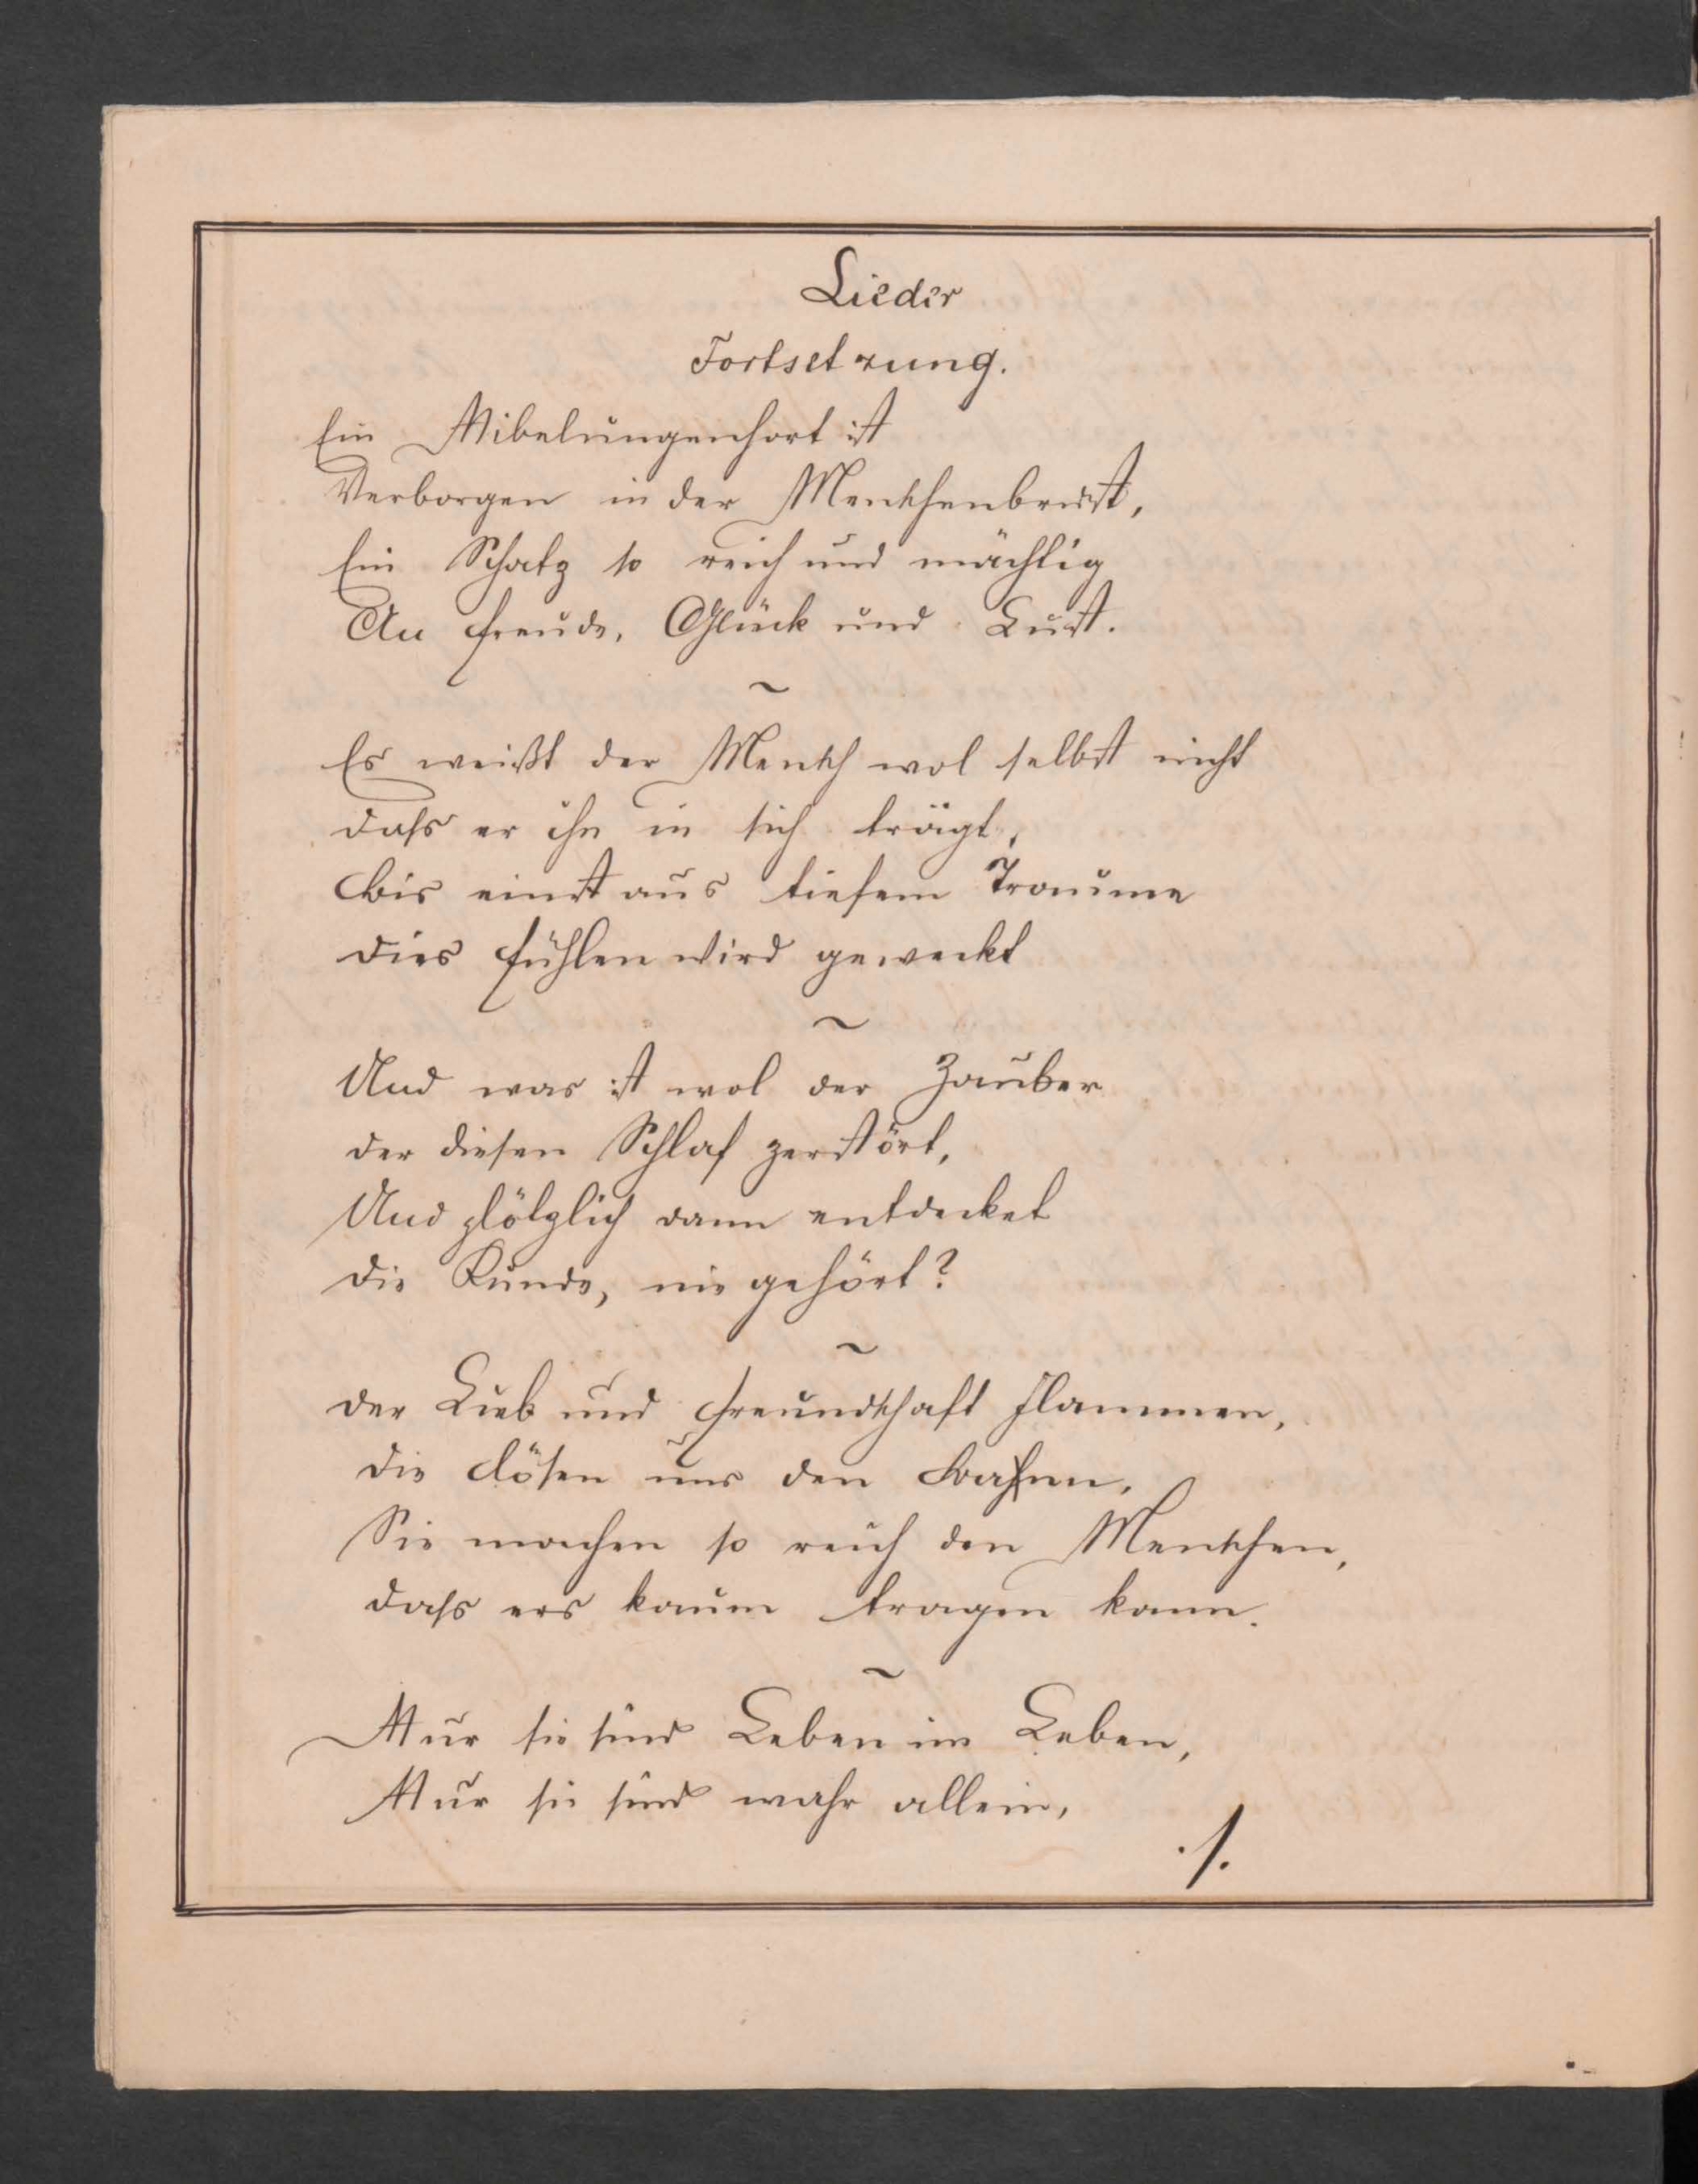 Lieder
Fortsetzung.
Ein Nibelungenhort ist
Verborgen in der Menschenbrust,
Ein Schatz so reich und mächtig
An Freude, Glück und Lust.
~
Es weißt der Mensch wol selbst nicht
daſs er ihn in sich trägt,
bis einst aus tiefem Traume
dies Fühlen wird geweckt
~
Und was ist wol der Zauber
der diesen Schlaf zerstört,
Und plötzlich dann entdecket
die Kunde, nie gehört?
~
der Lieb und Freundschaft Flammen,
die lösen uns den Bann,
Sie machen so reich den Menschen,
daſs ers kaum tragen kann.
~
Nur sie sind Leben im Leben,
Nur sie sind wahr allein,
./.